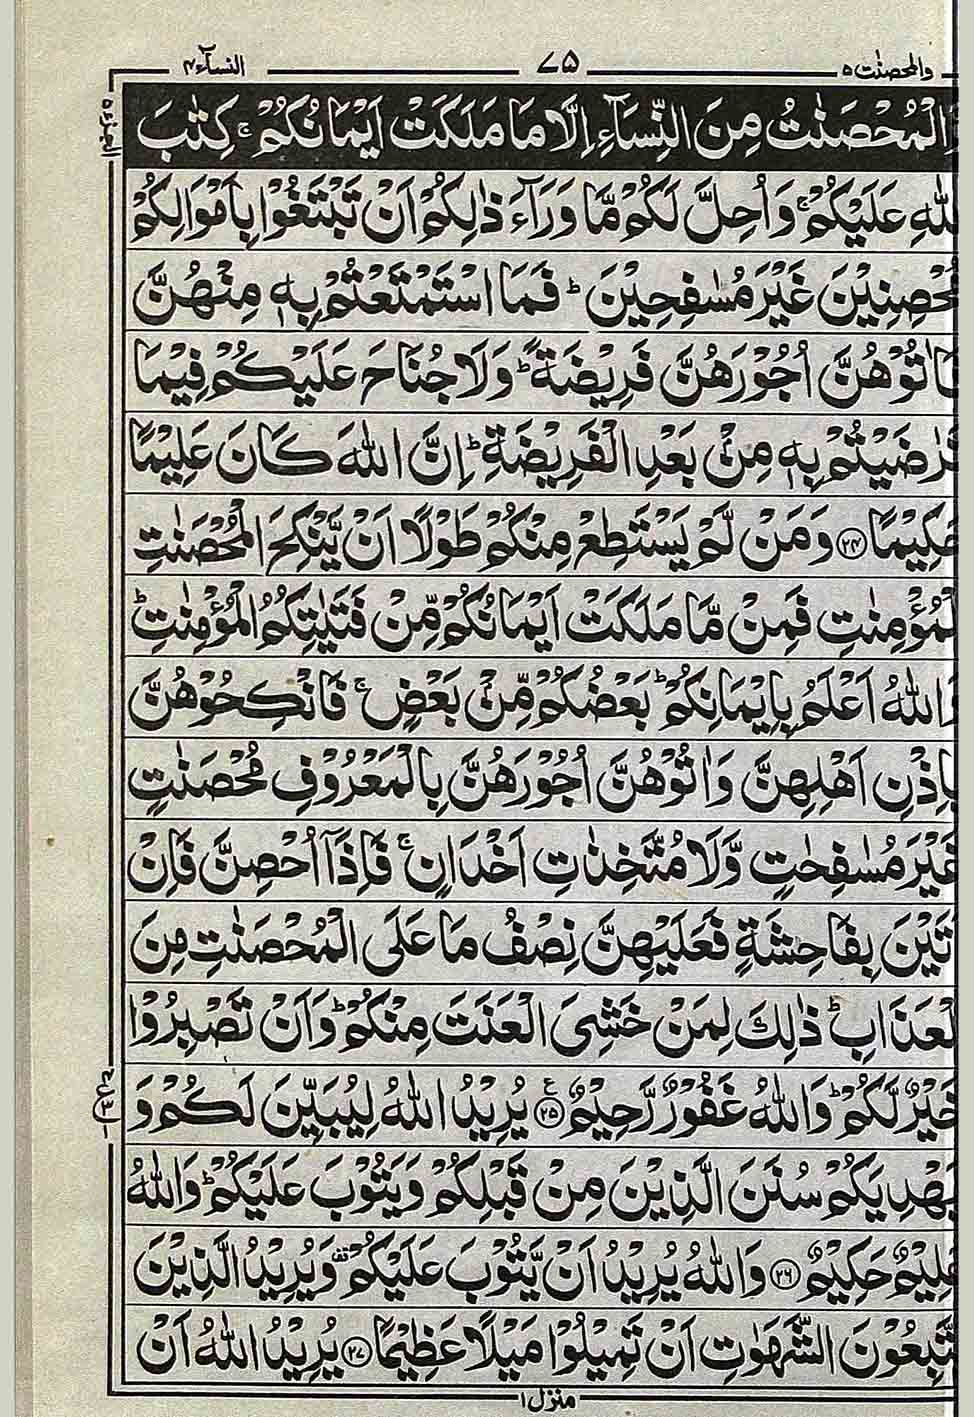 والمحصنٰت ۵ ۷۵ النسآء ۴
الْمُحْصَنٰتُ مِنَ النِّسَآءِ اِلَّا مَا مَلَكَتْ اَيْمَانُكُمْ ۚ كِتٰبَ
اللّٰهِ عَلَيْكُمْ ۚ وَاُحِلَّ لَكُمْ مَّا وَرَآءَ ذٰلِكُمْ اَنْ تَبْتَغُوْا بِاَمْوَالِكُمْ
مُّحْصِنِيْنَ غَيْرَ مُسٰفِحِيْنَ ؕ فَمَا اسْتَمْتَعْتُمْ بِهٖ مِنْهُنَّ
فَاٰتُوْهُنَّ اُجُوْرَهُنَّ فَرِيْضَةً ؕ وَلَا جُنَاحَ عَلَيْكُمْ فِيْمَا
تَرٰضَيْتُمْ بِهٖ مِنْۢ بَعْدِ الْفَرِيْضَةِ ؕ اِنَّ اللّٰهَ كَانَ عَلِيْمًا
حَكِيْمًا ﴿۲۴﴾ وَمَنْ لَّمْ يَسْتَطِعْ مِنْكُمْ طَوْلًا اَنْ يَّنْكِحَ الْمُحْصَنٰتِ
الْمُؤْمِنٰتِ فَمِنْ مَّا مَلَكَتْ اَيْمَانُكُمْ مِّنْ فَتَيٰتِكُمُ الْمُؤْمِنٰتِ ؕ
وَاللّٰهُ اَعْلَمُ بِاِيْمَانِكُمْ ؕ بَعْضُكُمْ مِّنْۢ بَعْضٍ ۚ فَانْكِحُوْهُنَّ
بِاِذْنِ اَهْلِهِنَّ وَاٰتُوْهُنَّ اُجُوْرَهُنَّ بِالْمَعْرُوْفِ مُحْصَنٰتٍ
غَيْرَ مُسٰفِحٰتٍ وَّلَا مُتَّخِذٰتِ اَخْدَانٍ ۚ فَاِذَاۤ اُحْصِنَّ فَاِنْ
اَتَيْنَ بِفَاحِشَةٍ فَعَلَيْهِنَّ نِصْفُ مَا عَلَى الْمُحْصَنٰتِ مِنَ
الْعَذَابِ ؕ ذٰلِكَ لِمَنْ خَشِىَ الْعَنَتَ مِنْكُمْ ؕ وَاَنْ تَصْبِرُوْا
خَيْرٌ لَّكُمْ ؕ وَاللّٰهُ غَفُوْرٌ رَّحِيْمٌ ﴿۲۵﴾ ع يُرِيْدُ اللّٰهُ لِيُبَيِّنَ لَكُمْ وَ
يَهْدِيَكُمْ سُنَنَ الَّذِيْنَ مِنْ قَبْلِكُمْ وَيَتُوْبَ عَلَيْكُمْ ؕ وَاللّٰهُ
عَلِيْمٌ حَكِيْمٌ ﴿۲۶﴾ وَاللّٰهُ يُرِيْدُ اَنْ يَّتُوْبَ عَلَيْكُمْ وَيُرِيْدُ الَّذِيْنَ
يَتَّبِعُوْنَ الشَّهَوٰتِ اَنْ تَمِيْلُوْا مَيْلًا عَظِيْمًا ﴿۲۷﴾ يُرِيْدُ اللّٰهُ اَنْ
منزل ۱